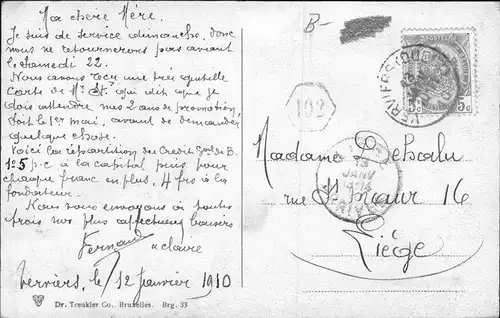 Ma chère Mère.
Je suis de service dimanche, donc
nous ne retournerons pas avant
le samedi 22.
Nous avons reçu une
carte de Mr qui dit que je
dois attendre mes 2 ans de promotion
soit le 1er mai, avant de demander
quelque chose.
Voici la répartition du Credit Gal de B.
5 p.c à la capital puis pour
chaque franc en plus, 4 frs à la
fondateur.
Nous vous envoyons à toutes
trois nos plus affectueux baisers
Fernand & Claire
Verviers, le 12 Janvier 1910
Dr. Trenkler Co., Bruxelles. Brg. 53
B-
102
VERVIERS
5c 5c
13
JANV
Madame
rue St Maur 16
Liége